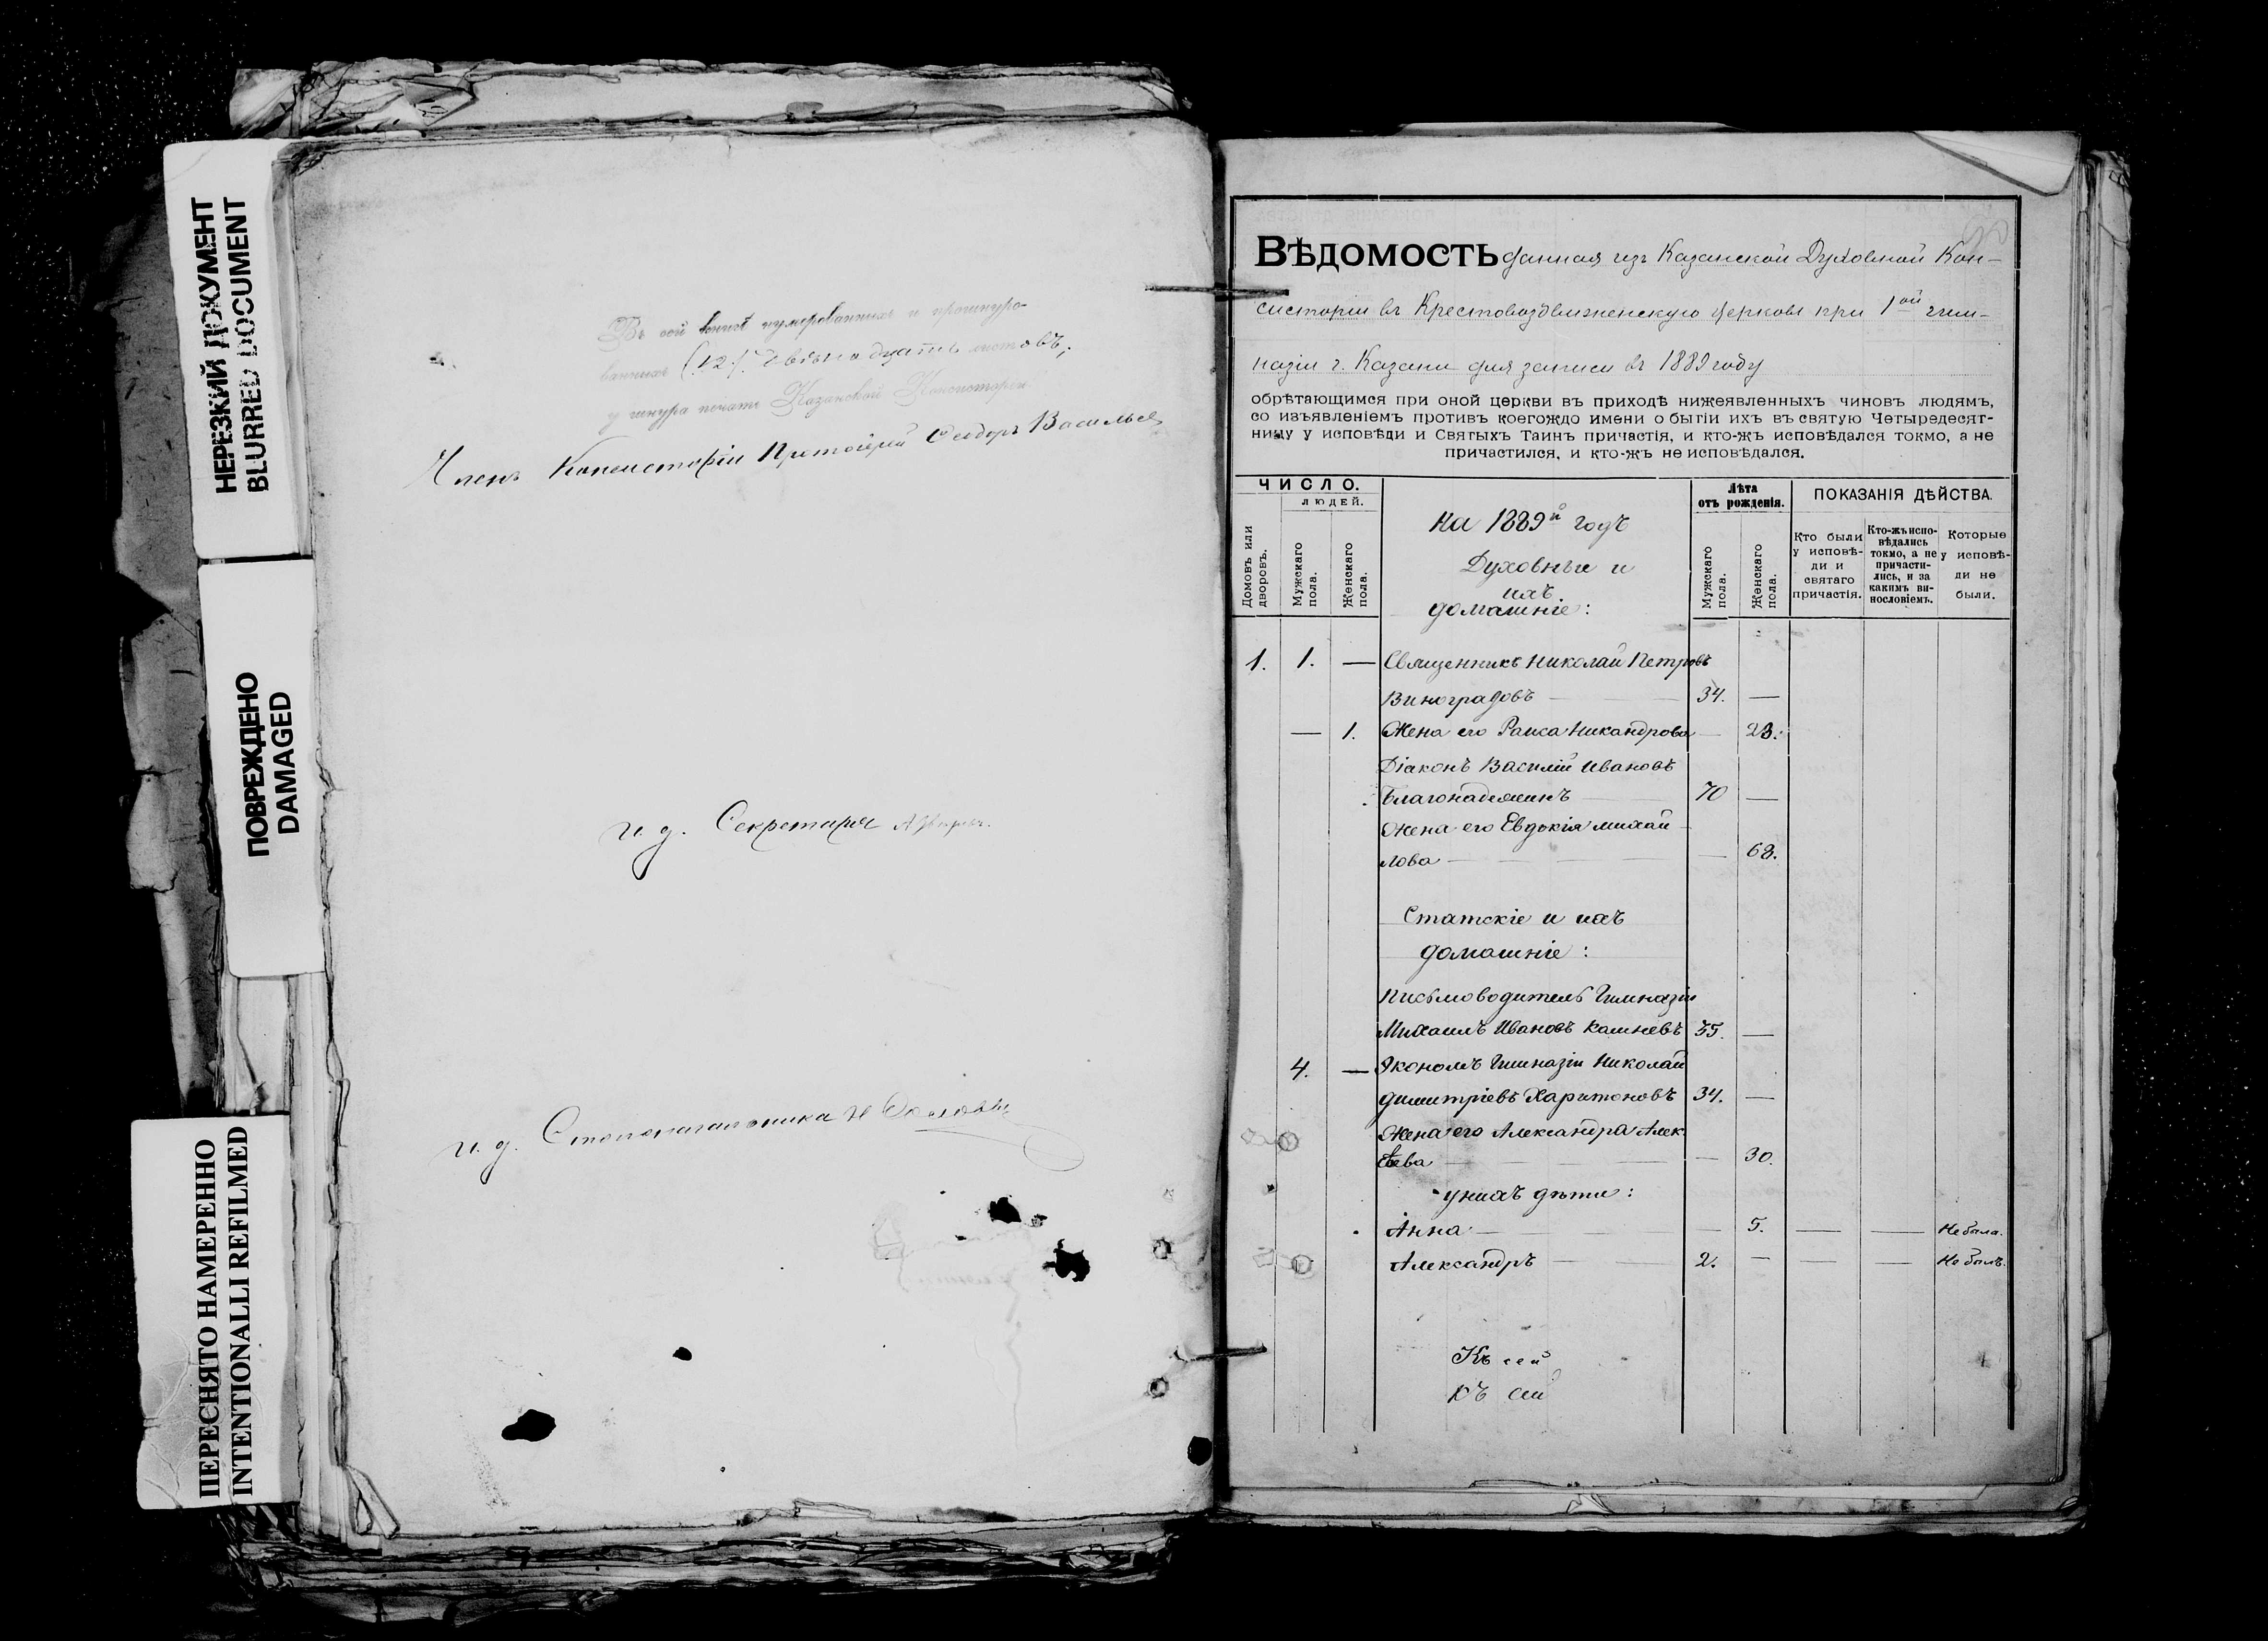 НЕРЕЗКИЙ ДОКУМЕНТ
BLURRED DOCUMENT
ПОВРЕЖДЕНО
DAMAGED
ПЕРЕСНЯТО НАМЕРЕННО
INTENTIONALLI REFILMED
Въ сей книгѣ нумерованныхъ и прошнуро-
ванныхъ (12) двѣнадцать листовъ,
у шнура печать Казанской Консисторіи
Членъ Консисторіи Протоіерей Ѳеодоръ Васильев
и. д. Секретаря
и. д. Столоначальника
ВѢДОМОСТЬ данная изъ Казанской Духовной Кон-
систоріи въ Крестовоздвиженскую церковь при 1ой гим-
назіи г. Казани для записи въ 1889 году
обрѣтающимся при оной церкви въ приходѣ нижеявленныхъ чиновъ людямъ,
со изъявленіемъ противъ коегождо имени о бытіи ихъ въ святую Четыредесят-
ницу у исповѣди и Святыхъ Таинъ причастія, и кто-жъ исповѣдался токмо, а не
причастился, и кто-жъ не исповѣдался.
ЧИСЛО.
ЛЮДЕЙ.
Домовъ или дворовъ.
Мужскаго пола.
Женскаго пола.
На 1889й годъ
Духовные и
ихъ
домашніе:
Лѣта
отъ рожденія.
Мужскаго пола.
Женскаго пола.
ПОКАЗАНІЯ ДѢЙСТВА.
Кто были у исповѣ-ди и святаго причастія.
Кто-жъ испо-вѣдались токмо, а не причасти-лись, и за какимъ ви-нословіемъ.
Которые у исповѣ-ди не были.
1. 1. — Священникъ Николай Петровъ
Виноградовъ — 34. —
— 1. Жена его Раиса Никандрова — 23.
Діаконъ Василій Ивановъ
Благонадеждинъ — 70 —
Жена его Евдокія Михай
лова — — 68.
Статскіе и ихъ
домашніе:
Письмоводитель Гимназіи
Михаилъ Ивановъ Камневъ 35. —
4. — Экономъ Гимназіи Николай
Димитріевъ Харитоновъ 34. —
Жена его Александра Алек
еева — — 30.
у нихъ дѣти:
Анна — — 5. — — Не была.
Александръ — 2. — — — Не былъ.
Къ сей
Къ сей